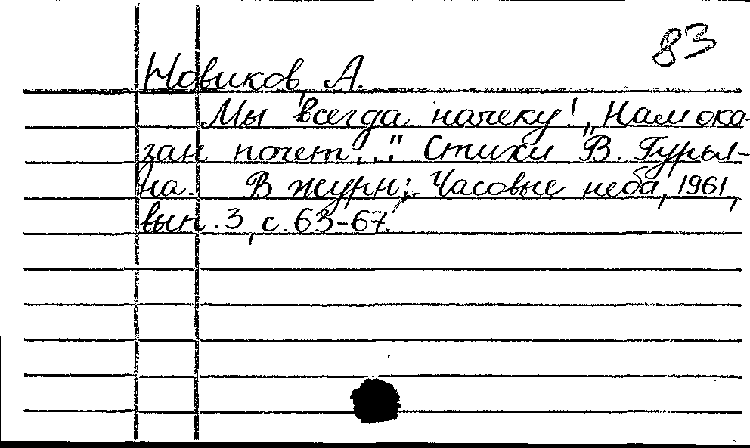 83
Новиков, А.
Мы всегда начеку! „Нам ока-
зан почет..." Стихи В. Гуры-
на. В журн.: Часовые неба, 1961,
вып. 3, с. 63-67.